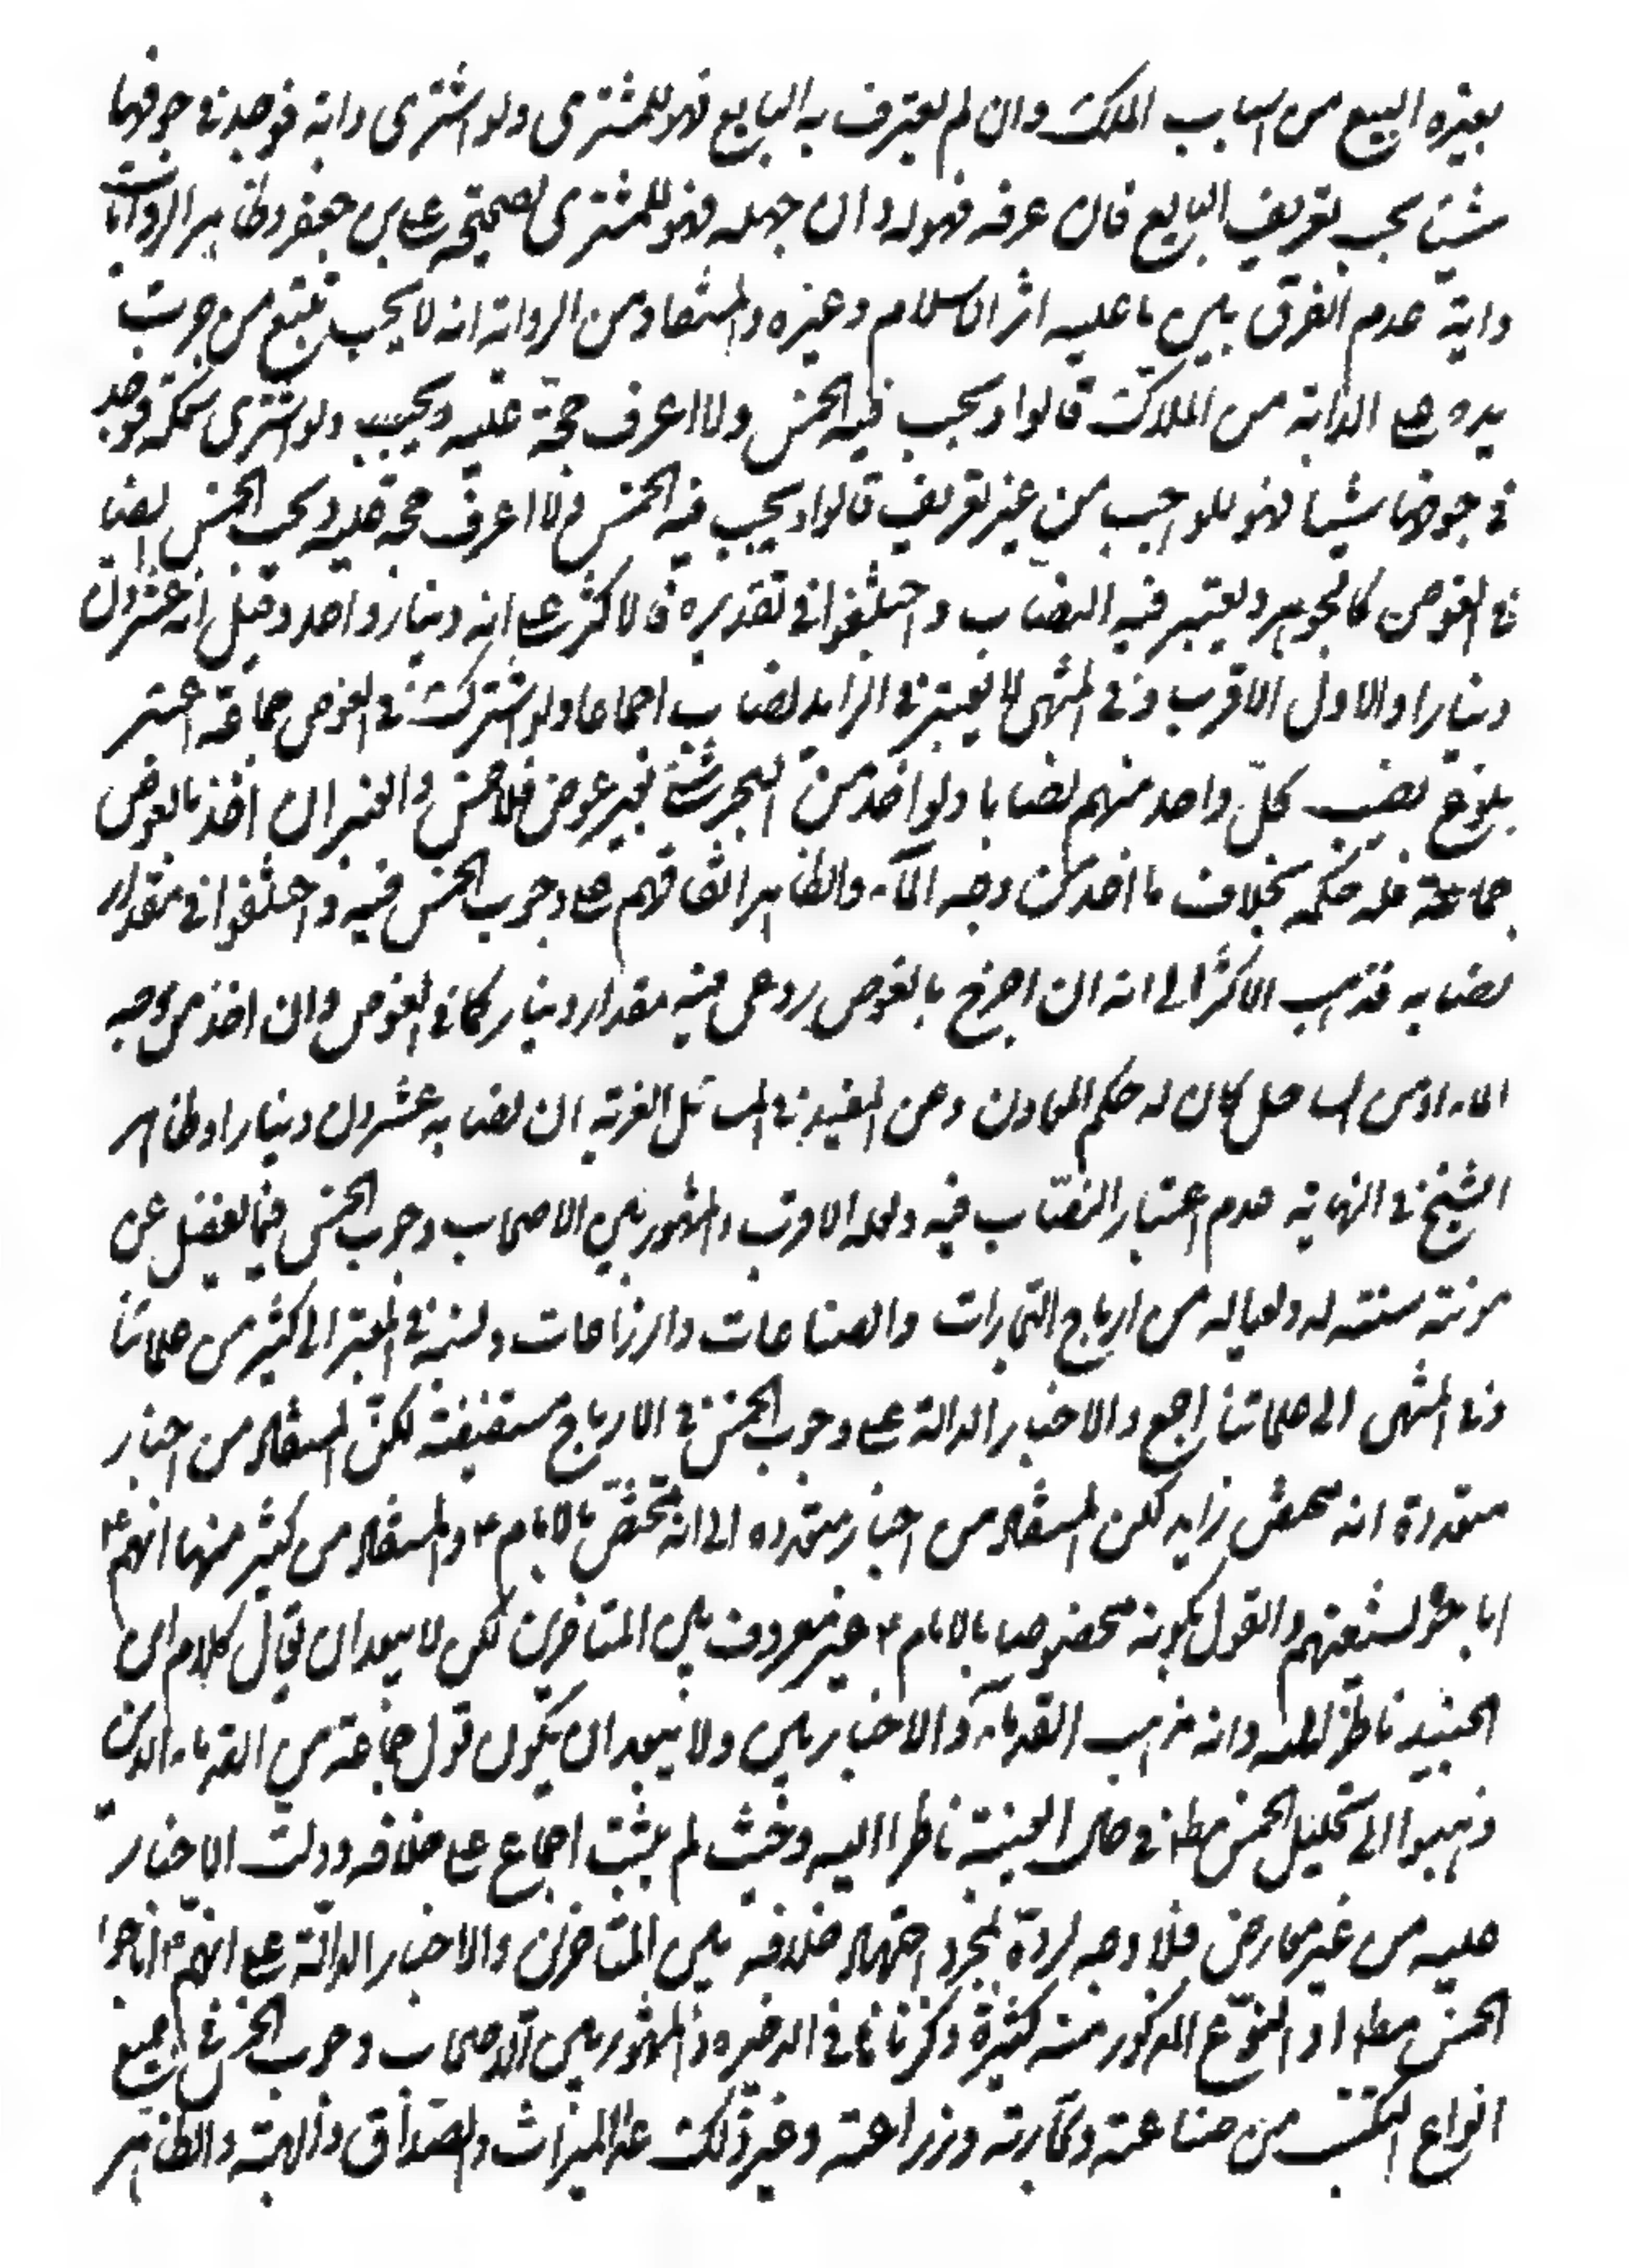 بغيره البيع من اسباب الملك وان لم يعترف به البايع فهو للمشترى ولو اشترى دابة فوجد في جوفها
شيئا يجب تعريف البايع فان عرفه فهو له وان جهله فهو للمشترى لصحيحة على بن جعفر وظاهر الروايات
داية عدم الفرق بين ما عليه اثر الاسلام وغيره والمستفاد من الرواية انه لا يجب تتبع من جرت
يده على الدابة من الملاك قالوا ويجب فيه الخمس ولا اعرف حجة عليه ويجيب ولو اشترى سمكة فوجد
في جوفها شيئا فهو للواجب من غير تعريف قالوا ويجب فيه الخمس ولا اعرف حجة عليه ويجب الخمس ايضا
في الغوص كالجوهر ويعتبر فيه النصاب واختلفوا في تقديره فالاكثر على انه دينار واحد وقيل انه عشرون
دينارا والاول الاقرب وفي المنتهى لا يعتبر في الزايد نصاب اجماعا ولو اشترك في الغوص جماعة اعتبر
بلوغ نصيب كل واحد منهم نصابا ولو اخذ من البحر شئ بغير غوص فلا خمس والعنبر ان اخذ بالغوص
جماعة فله حكمه بخلاف ما اخذ من وجه الماء والظاهر اتفاقهم على وجوب الخمس فيه واختلفوا في مقدار
نصابه فذهب الاكثر الى انه ان اخرج بالغوص روعى فيه مقدار دينار كما في الغوص وان اخذ من وجه
الماء او من الساحل كان له حكم المعادن وعن المفيد في المسائل الغرية ان نصابه عشرون دينارا وظاهر
الشيخ في النهاية عدم اعتبار النصاب فيه ولعله الاقرب والمشهور بين الاصحاب وجوب الخمس فيما يفضل عن
مونته سنته له ولعياله من ارباح التجارات والصناعات والزراعات ونسبه في المعتبر الى كثير من علمائنا
وفي المنتهى الى علمائنا اجمع والاخبار الدالة على وجوب الخمس في الارباح مستفيضة لكن المستفاد من اخبار
متعددة انه مختص زايد لكن المستفاد من اخبار متعدده الى انه مختص بالامام ع والمستفاد من كثير منها انهم ع
اباحوا لشيعتهم والقول بكونه مخصوصا بالامام ع غير معروف بين المتاخرين لكن لا يبعد ان يقال كلام ابن
الجنيد ناظر اليه وانه مذهب القدماء والاخباريين ولا يبعد ان يكون قول جماعة من القدماء الذين
ذهبوا الى تحليل الخمس مطلقا في حال الغيبة ناظرا اليه وحيث لم يثبت اجماع على خلافه ودلت الاخبار
عليه من غير معارض فلا وجه لرده بمجرد اشتهار خلافه بين المتاخرين والاخبار الدالة على انهم ع اباحوا
الخمس مطلقا او النوع المذكور منه كثيرة ذكرناها في الذخيره والمشهور بين الاصحاب وجوب الخمس في جميع
انواع التكسب من صناعة وتجارة وزراعة وغير ذلك عدا الميراث والصداق والهبة والظاهر